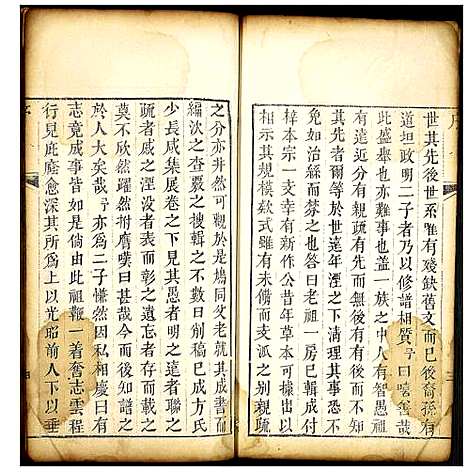 世其先後世系雖有殘缺舊文而已後裔孫有
道坦政明二子者乃以修譜相質予曰嘻善哉
此盛舉也亦難事也盖一族之中人有智愚祖
有遠近分有親疏有先而無後有有後而無
其先者爾等於世遠年湮之下清理其事不
免如治絲而棼之也答曰老祖一房已輯成付
梓本宗一支幸有新作公昔年草本可以
相示其規模欵式雖有未備而支派之别親疏
之分亦井然可觀於是鳩同父老就其成書
編次之查覈之搜輯之不倒稿已成方氏
少長咸集展卷之下見其愚者明之遠者聯之
疏者戚之湮没者表而彰之遺忘者存而載之
莫不欣然躍然拊膺嘆曰甚哉今而後有功
於人大矣哉予亦爲二子懽然相慶曰有
志竟成事皆如是倘由此祖鞭一着奮志雲程
行見庇廕愈深其所爲上以光昭前人下以垂